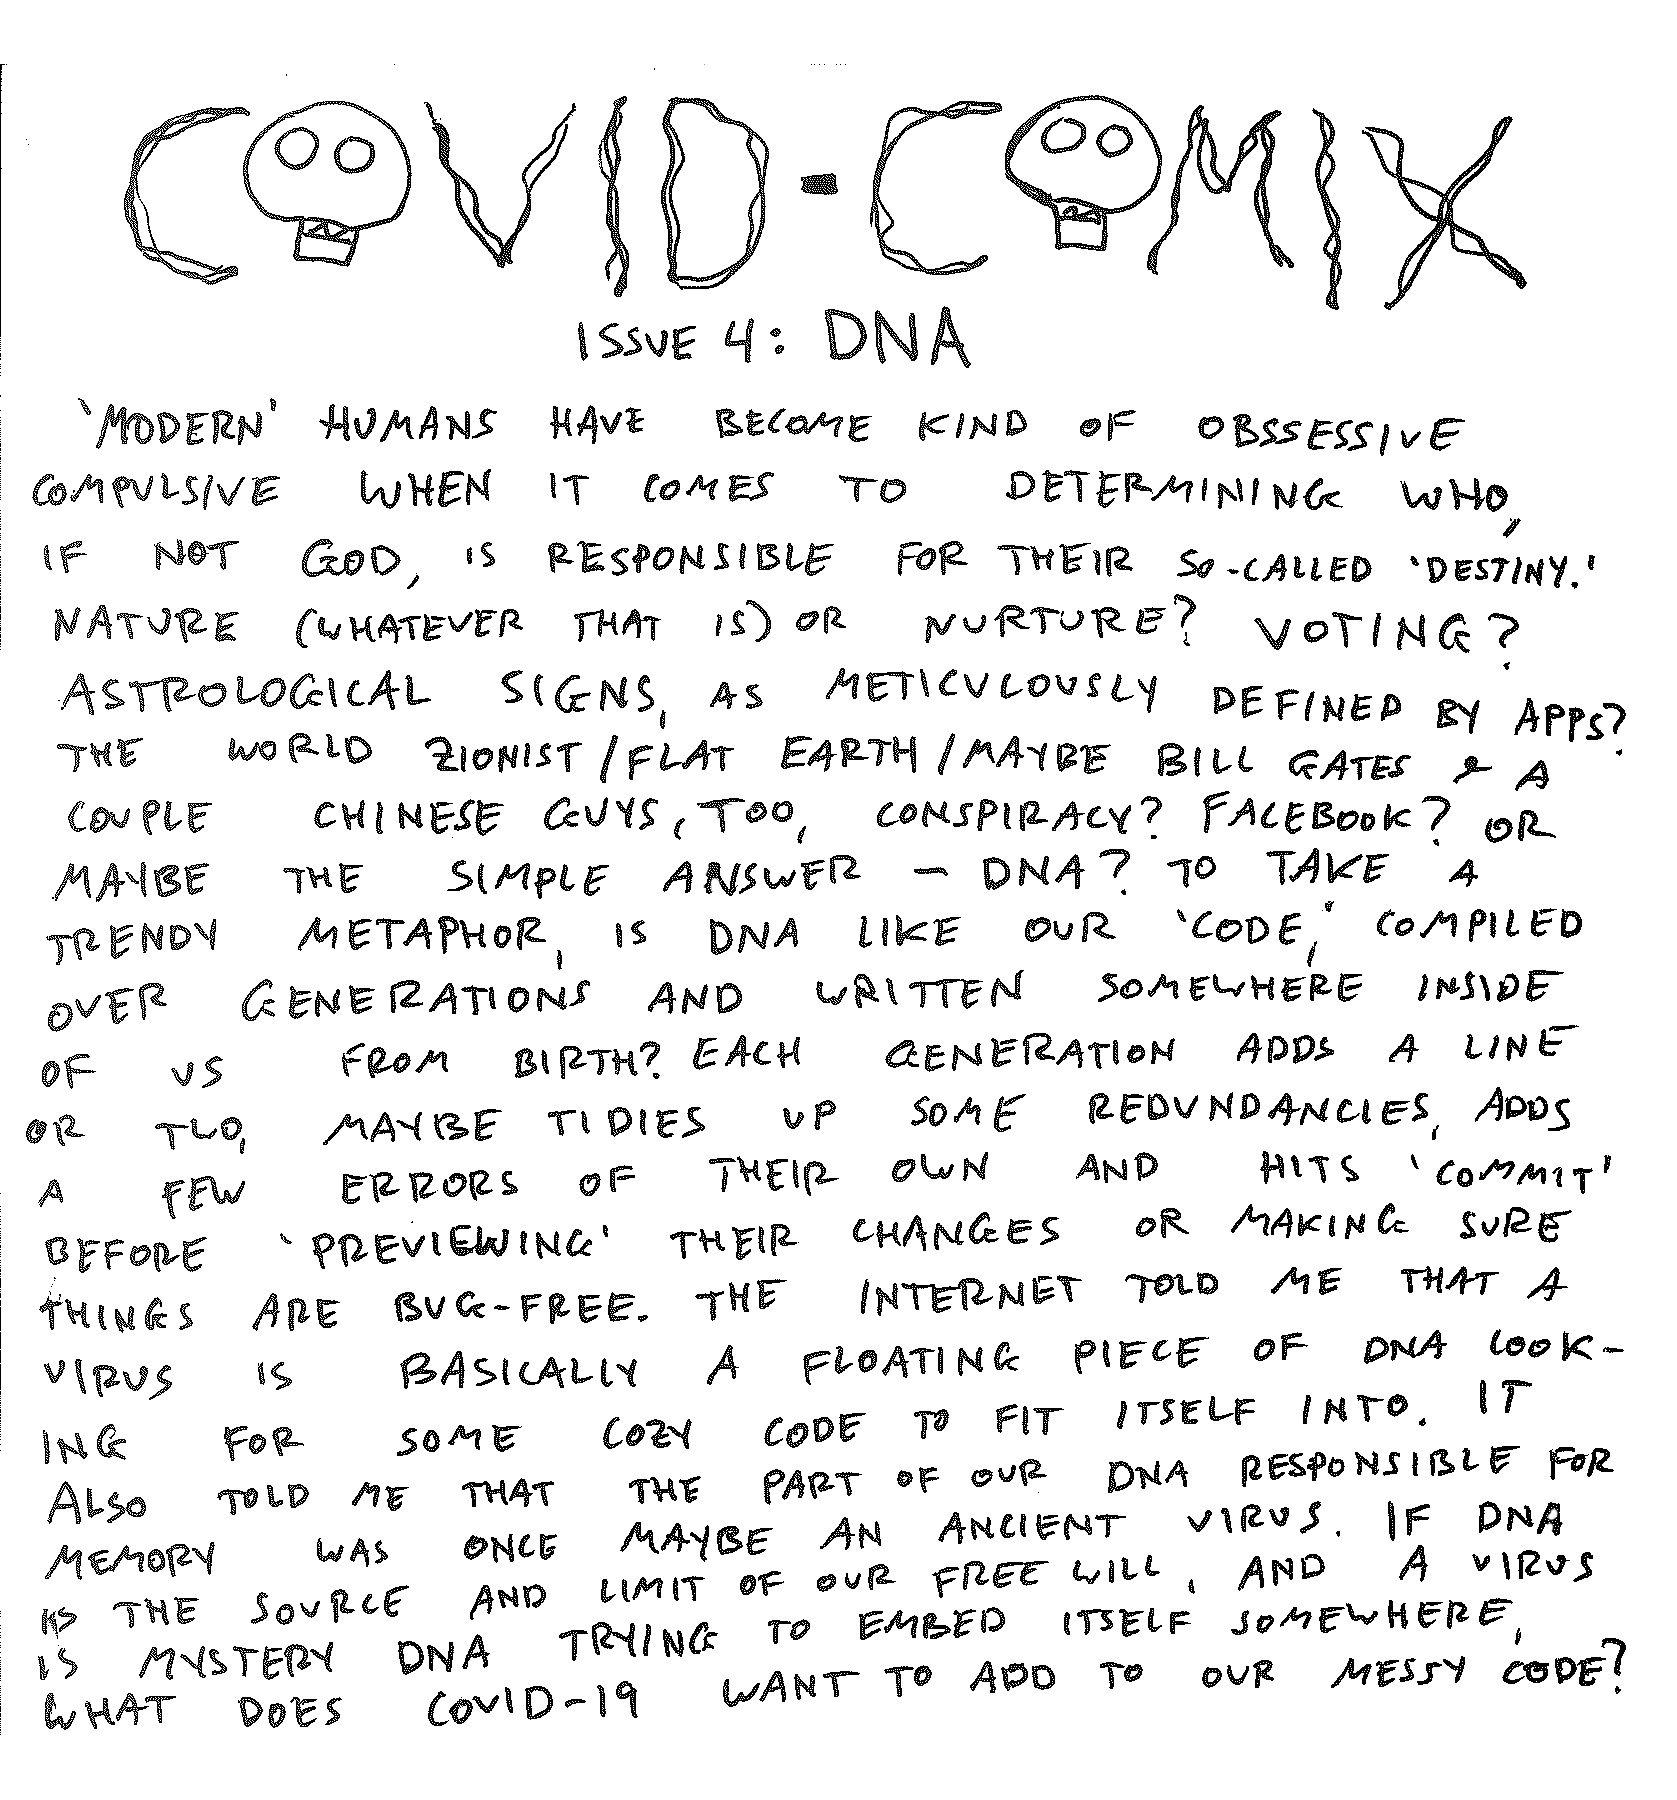 COVID-COMIX
ISSUE 4: DNA
'MODERN' HUMANS HAVE BECOME KIND OF OBSSESSIVE
COMPULSIVE WHEN IT COMES TO DETERMINING WHO,
IF NOT GOD, IS RESPONSIBLE FOR THEIR SO-CALLED 'DESTINY.'
NATURE (WHATEVER THAT IS) OR NURTURE? VOTING?
ASTROLOGICAL SIGNS, AS METICULOUSLY DEFINED BY APPS?
THE WORLD ZIONIST/FLAT EARTH/MAYBE BILL GATES & A
COUPLE CHINESE GUYS, TOO, CONSPIRACY? FACEBOOK? OR
MAYBE THE SIMPLE ANSWER – DNA? TO TAKE A
TRENDY METAPHOR, IS DNA LIKE OUR 'CODE,' COMPILED
OVER GENERATIONS AND WRITTEN SOMEWHERE INSIDE
OF US FROM BIRTH? EACH GENERATION ADDS A LINE
OR TWO, MAYBE TIDIES UP SOME REDUNDANCIES, ADDS
A FEW ERRORS OF THEIR OWN AND HITS 'COMMIT'
BEFORE 'PREVIEWING' THEIR CHANGES OR MAKING SURE
THINGS ARE BUG-FREE. THE INTERNET TOLD ME THAT A
VIRUS IS BASICALLY A FLOATING PIECE OF DNA LOOK-
ING FOR SOME COZY CODE TO FIT ITSELF INTO. IT
ALSO TOLD ME THAT THE PART OF OUR DNA RESPONSIBLE FOR
MEMORY WAS ONCE MAYBE AN ANCIENT VIRUS. IF DNA
IS THE SOURCE AND LIMIT OF OUR FREE WILL, AND A VIRUS
IS MYSTERY DNA TRYING TO EMBED ITSELF SOMEWHERE,
WHAT DOES COVID-19 WANT TO ADD TO OUR MESSY CODE?